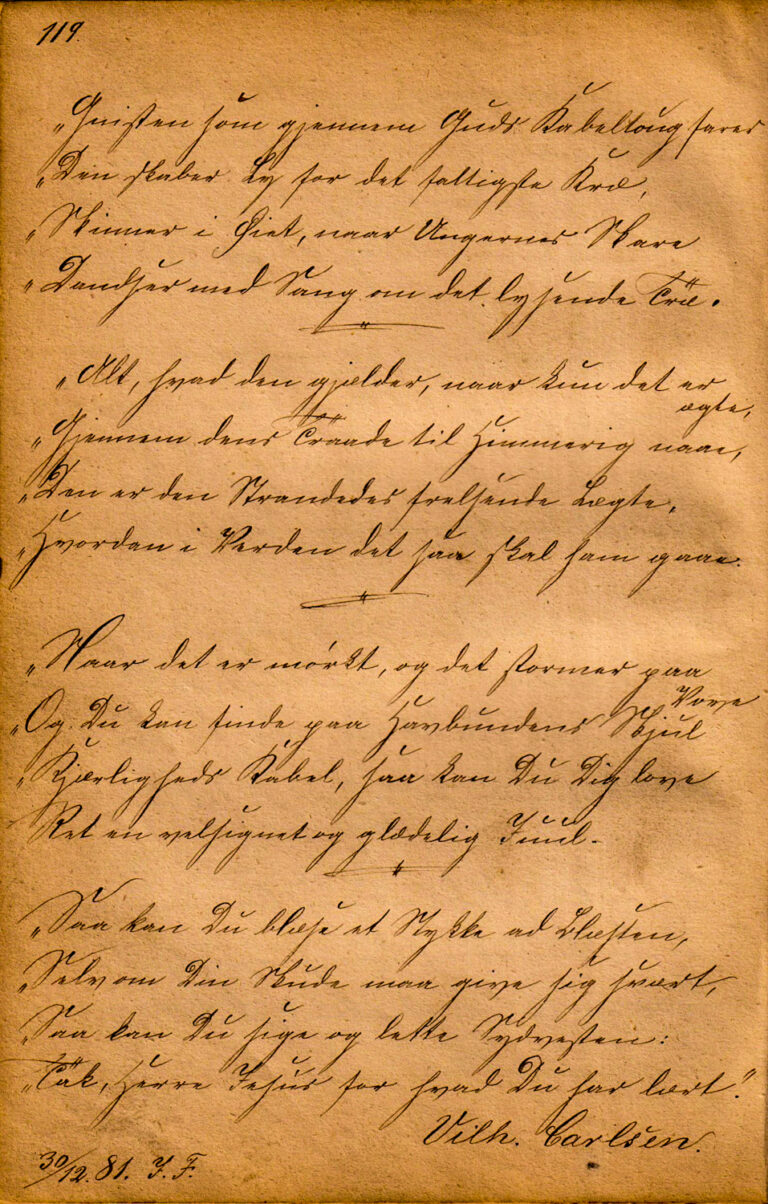 119.
„Gnisten som gjennem Guds Kabeltoug farer
„Den skaber Ly for det fattigste Kræ,
„Skinner i Øiet, naar Ungernes Skare
„Dandser med Sang om det lysende Træ.
„Alt, hvad den gjælder, naar kun det er
ægte,
„Gjennem dens Traade til Himmerig naae,
„Den er den Strandedes frelsende Lægte,
„Hvordan i Verden det saa skal ham gaae.
„Naar det er mørkt, og det stormer paa
Vove
„Og Du kan finde paa Havbundens Skjul
„Kjærligheds Kabel, saa kan Du Dig love
Ret en velsignet og glædelig Juul.
„Saa kan Du blæse et Stykke ad Blæsten,
„Selv om Din Skude maa give sig svært,
„Saa kan Du sige og lette Sydvesten:
„Tak, Herre Jesus for hvad Du har lært."
Vilh. Carlsen.
30/12. 81. J. F.